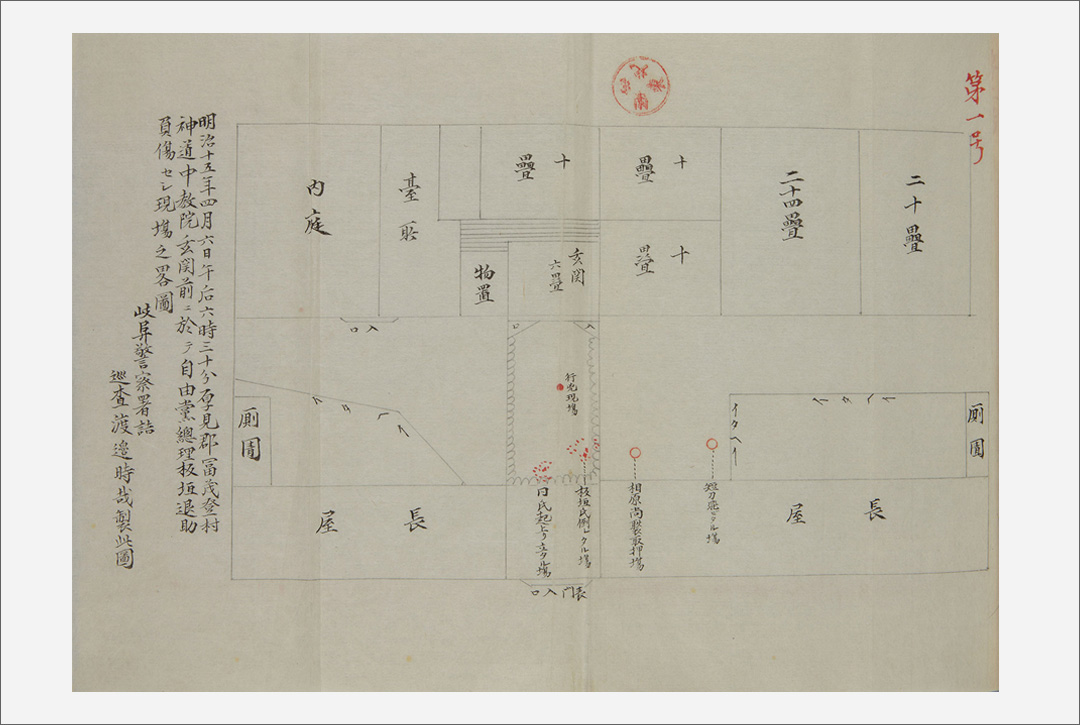 第一号
二十疊
二十四疊
十疊
十疊
十疊
玄関
六畳
物置
臺所
内庭
入口
入口
行兇現場
イタヘイ
イタヘイ
イタヘイ
厠圊
厠圊
長屋
長屋
相原尚褧取押場
板垣氏倒レタル場
同氏起上り立タル場
表門入口
明治十五年四月六日午后六時三十分厚見郡冨茂登村
神道中教院玄関前ニ於テ自由黨總理板垣退助
負傷セシ現場之畧圖
岐阜警察署詰
巡査渡邉時哉製此圖